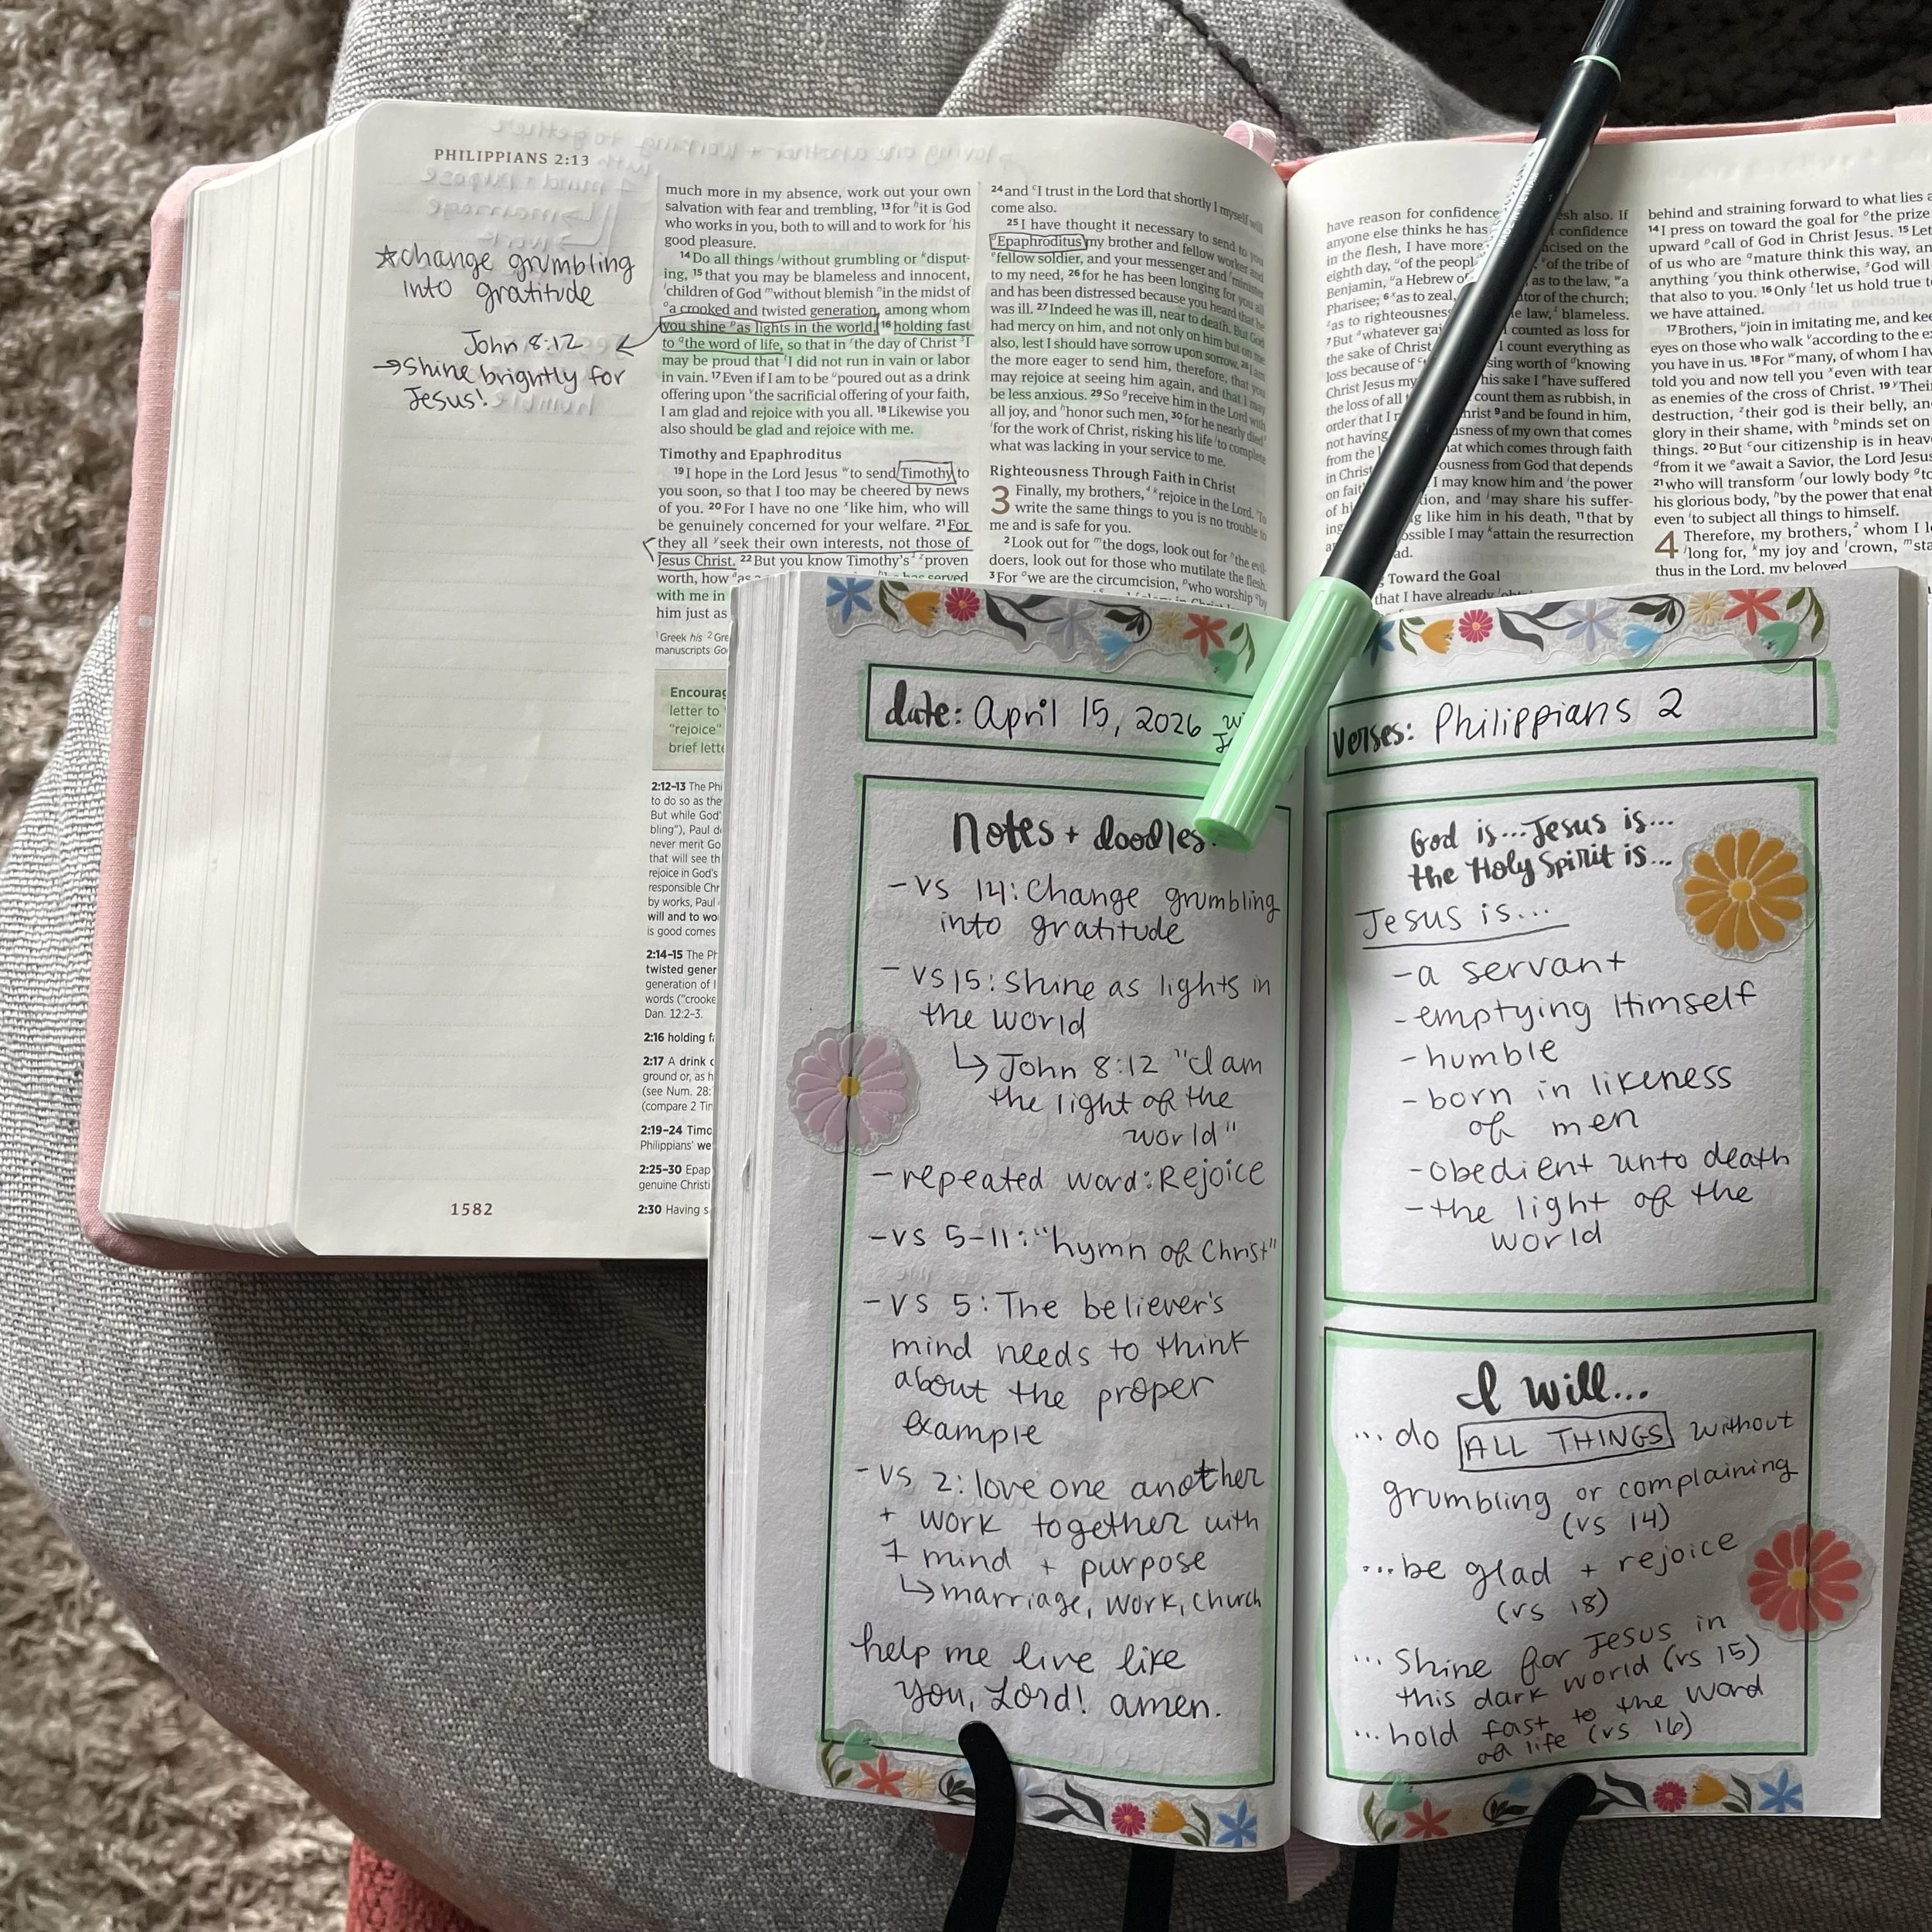 PHILIPPIANS 2:13
★change grumbling
into gratitude
John 8:12
→shine brightly for
Jesus!
much more in my absence, work out your own
salvation with fear and trembling, 13 for h it is God
who works in you, both to will and to work for i his
good pleasure.
14 Do all things j without grumbling or k disput-
ing, 15 that you may be blameless and innocent,
l children of God m without blemish n in the midst of
o a crooked and twisted generation, among whom
you shine p as lights in the world, 16 holding fast
to q the word of life, so that in r the day of Christ s I
may be proud that t I did not run in vain or labor
in vain. 17 Even if I am to be u poured out as a drink
offering upon v the sacrificial offering of your faith,
I am glad and rejoice with you all. 18 Likewise you
also should be glad and rejoice with me.
Timothy and Epaphroditus
19 I hope in the Lord Jesus w to send Timothy to
you soon, so that I too may be cheered by news
of you. 20 For I have no one x like him, who will
be genuinely concerned for your welfare. 21 For
they all y seek their own interests, not those of
Jesus Christ. 22 But you know Timothy's 2 z proven
worth, how a as served
with me in
him just as
1 Greek his 2 Gre
manuscripts Go
Encourag
letter to
"rejoice"
brief lette
2:12–13 The Phi
to do so as the
But while God'
bling"), Paul d
never merit Go
that will see th
rejoice in God's
responsible Chr
by works, Paul
will and to wo
is good comes
2:14–15 The Ph
twisted gener
generation of I
words ("crooke
Dan. 12:2–3.
2:16 holding f
2:17 A drink
ground or, as h
(see Num. 28:
(compare 2 Tim
2:19–24 Timo
Philippians' we
2:25–30 Epap
genuine Christi
2:30 Having s
1582
24 and c I trust in the Lord that shortly I myself will
come also.
25 I have thought it necessary to send to you
d Epaphroditus my brother and fellow worker and
e fellow soldier, and your messenger and f minister
to my need, 26 for he has been longing for you all
and has been distressed because you heard that he
was ill. 27 Indeed he was ill, near to death. But God
had mercy on him, and not only on him but on me
also, lest I should have sorrow upon sorrow. 28 I am
the more eager to send him, therefore, that you
may rejoice at seeing him again, and that I may
be less anxious. 29 So g receive him in the Lord with
all joy, and h honor such men, 30 for he nearly died
i for the work of Christ, risking his life j to complete
what was lacking in your service to me.
Righteousness Through Faith in Christ
3 Finally, my brothers, k rejoice in the Lord. To
write the same things to you is no trouble to
me and is safe for you.
2 Look out for m the dogs, look out for n the evil-
doers, look out for those who mutilate the flesh.
3 For o we are the circumcision, p who worship by
have reason for confidence esh also. If
anyone else thinks he has confidence
in the flesh, I have more ncised on the
eighth day, of the peopl of the tribe of
Benjamin, a Hebrew of as to the law, a
Pharisee; 6 as to zeal, tor of the church;
as to righteousness e law, blameless.
7 But whatever gai counted as loss for
the sake of Christ I count everything as
loss because of sing worth of knowing
Christ Jesus my his sake I have suffered
the loss of all count them as rubbish, in
order that I hrist 9 and be found in him,
not having sness of my own that comes
from the hat which comes through faith
in Christ ousness from God that depends
on fait I may know him and the power
of hi tion, and may share his suffer-
ing g like him in his death, 11 that by
ossible I may attain the resurrection
ad.
Toward the Goal
that I have already
behind and straining forward to what lies
14 I press on toward the goal for the prize
upward call of God in Christ Jesus. 15 Let
of us who are mature think this way, an
anything you think otherwise, God will
that also to you. 16 Only let us hold true t
we have attained.
17 Brothers, join in imitating me, and kee
eyes on those who walk according to the e
you have in us. 18 For many, of whom I hav
told you and now tell you even with tear
as enemies of the cross of Christ. 19 Thei
destruction, their god is their belly, an
glory in their shame, with minds set on
things. 20 But our citizenship is in heav
from it we await a Savior, the Lord Jesus
21 who will transform our lowly body to
his glorious body, by the power that enab
even to subject all things to himself.
4 Therefore, my brothers, whom I l
long for, my joy and crown, sta
thus in the Lord, my beloved.
date: April 15, 2026
notes + doodles:
-vs 14: Change grumbling
into gratitude
-vs 15: Shine as lights in
the world
↳ John 8:12 "I am
the light of the
world"
-repeated word: Rejoice
-vs 5-11: "hymn of Christ"
-vs 5: The believer's
mind needs to think
about the proper
example
-vs 2: love one another
+ work together with
1 mind + purpose
↳ marriage, work, church
help me live like
you, Lord! amen.
verses: Philippians 2
God is... Jesus is...
the Holy Spirit is...
Jesus is...
-a servant
-emptying Himself
-humble
-born in likeness
of men
-obedient unto death
-the light of the
world
I will...
...do ALL THINGS without
grumbling or complaining
(vs 14)
...be glad + rejoice
(vs 18)
...shine for Jesus in
this dark world (vs 15)
...hold fast to the word
of life (vs 16)